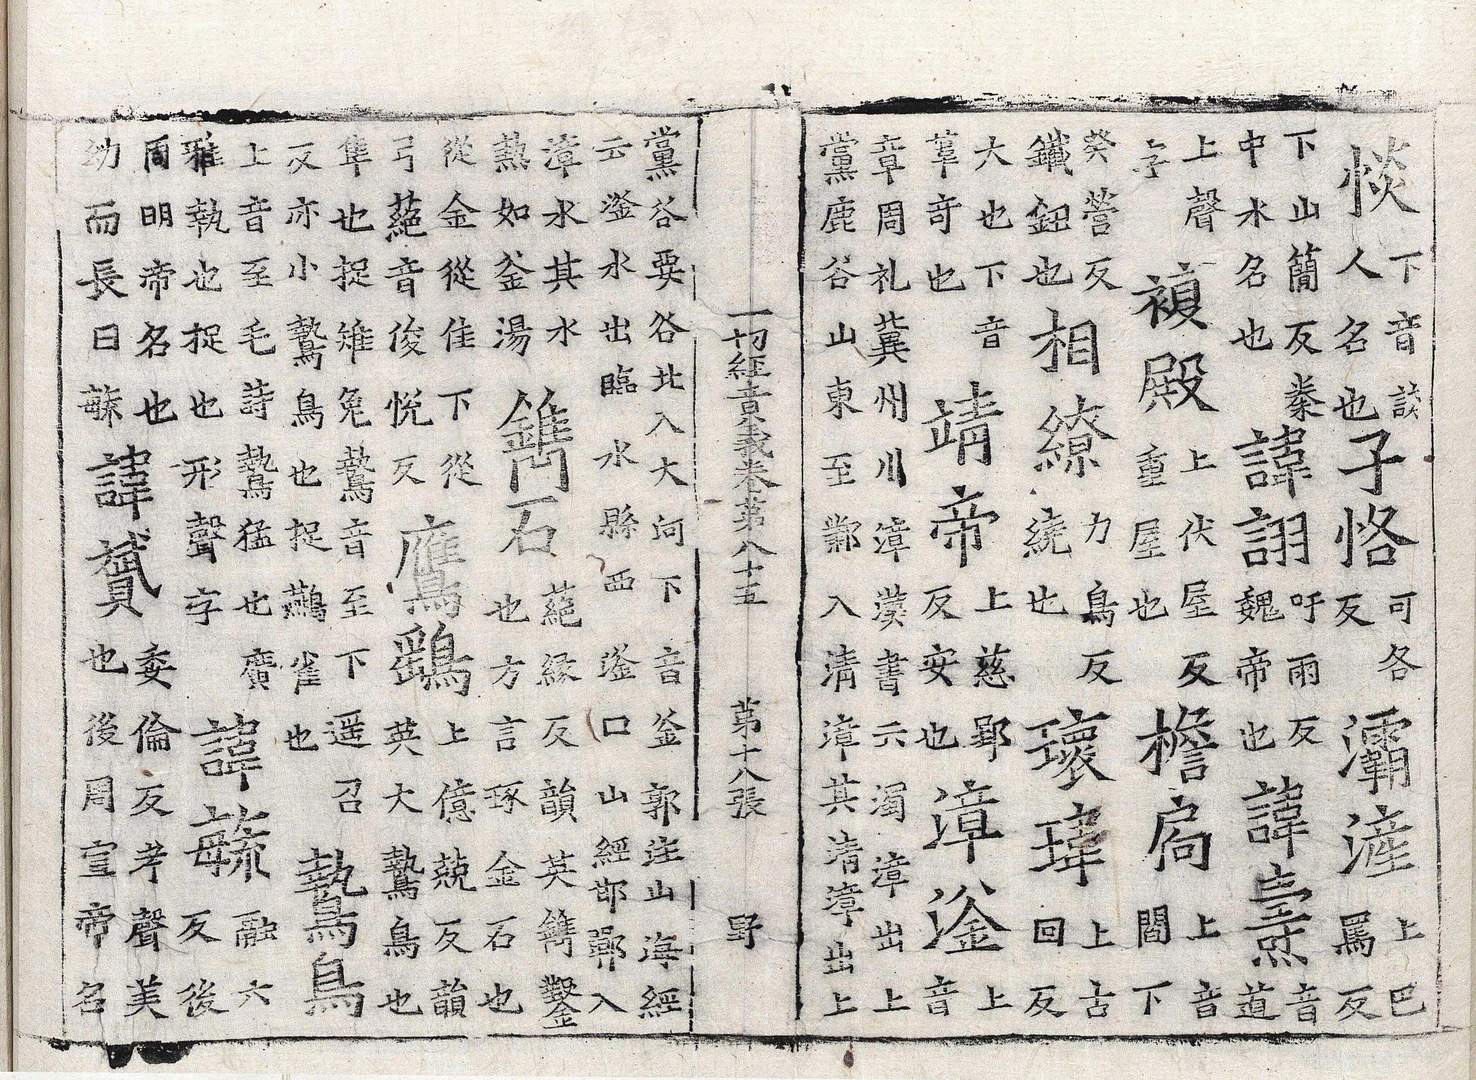 惔下音談人名也子恪可各反灞滻上巴罵反
下山簡反秦中水名也諱詡吁雨反魏帝也諱燾音道
上聲字複殿上伏屋反重屋也檐扃上音閻下
癸營反鐵鈕也相繚力鳥反繞也瓌瑋上古回反
大也下音葦奇也靖帝上慈郢反安也漳滏上音
章周礼冀州川漳漢書云濁漳出上黨鹿谷山東至鄴入清漳其清漳出上
一切經音義卷第八十五 第十八張 野
黨谷要谷北入大河下音釜郭注山海經云滏水出臨水縣西滏口山經邯鄴入
漳水其水熱如釜湯鐫石蕝緣反韻英鐫鑿也方言琢金石也
從金從隹下從弓蕝音俊悅反鷹鸇上億兢反韻英大鷙鳥也
隼也捉雉兔鷙音至下遥召反亦小鷙鳥也捉鷃雀也鷙鳥
上音至毛詩鷙猛也廣雅執也捉也形聲字諱毓融六反後
周明帝名也幼而長曰毓諱贇委倫反考聲美也後周宣帝名